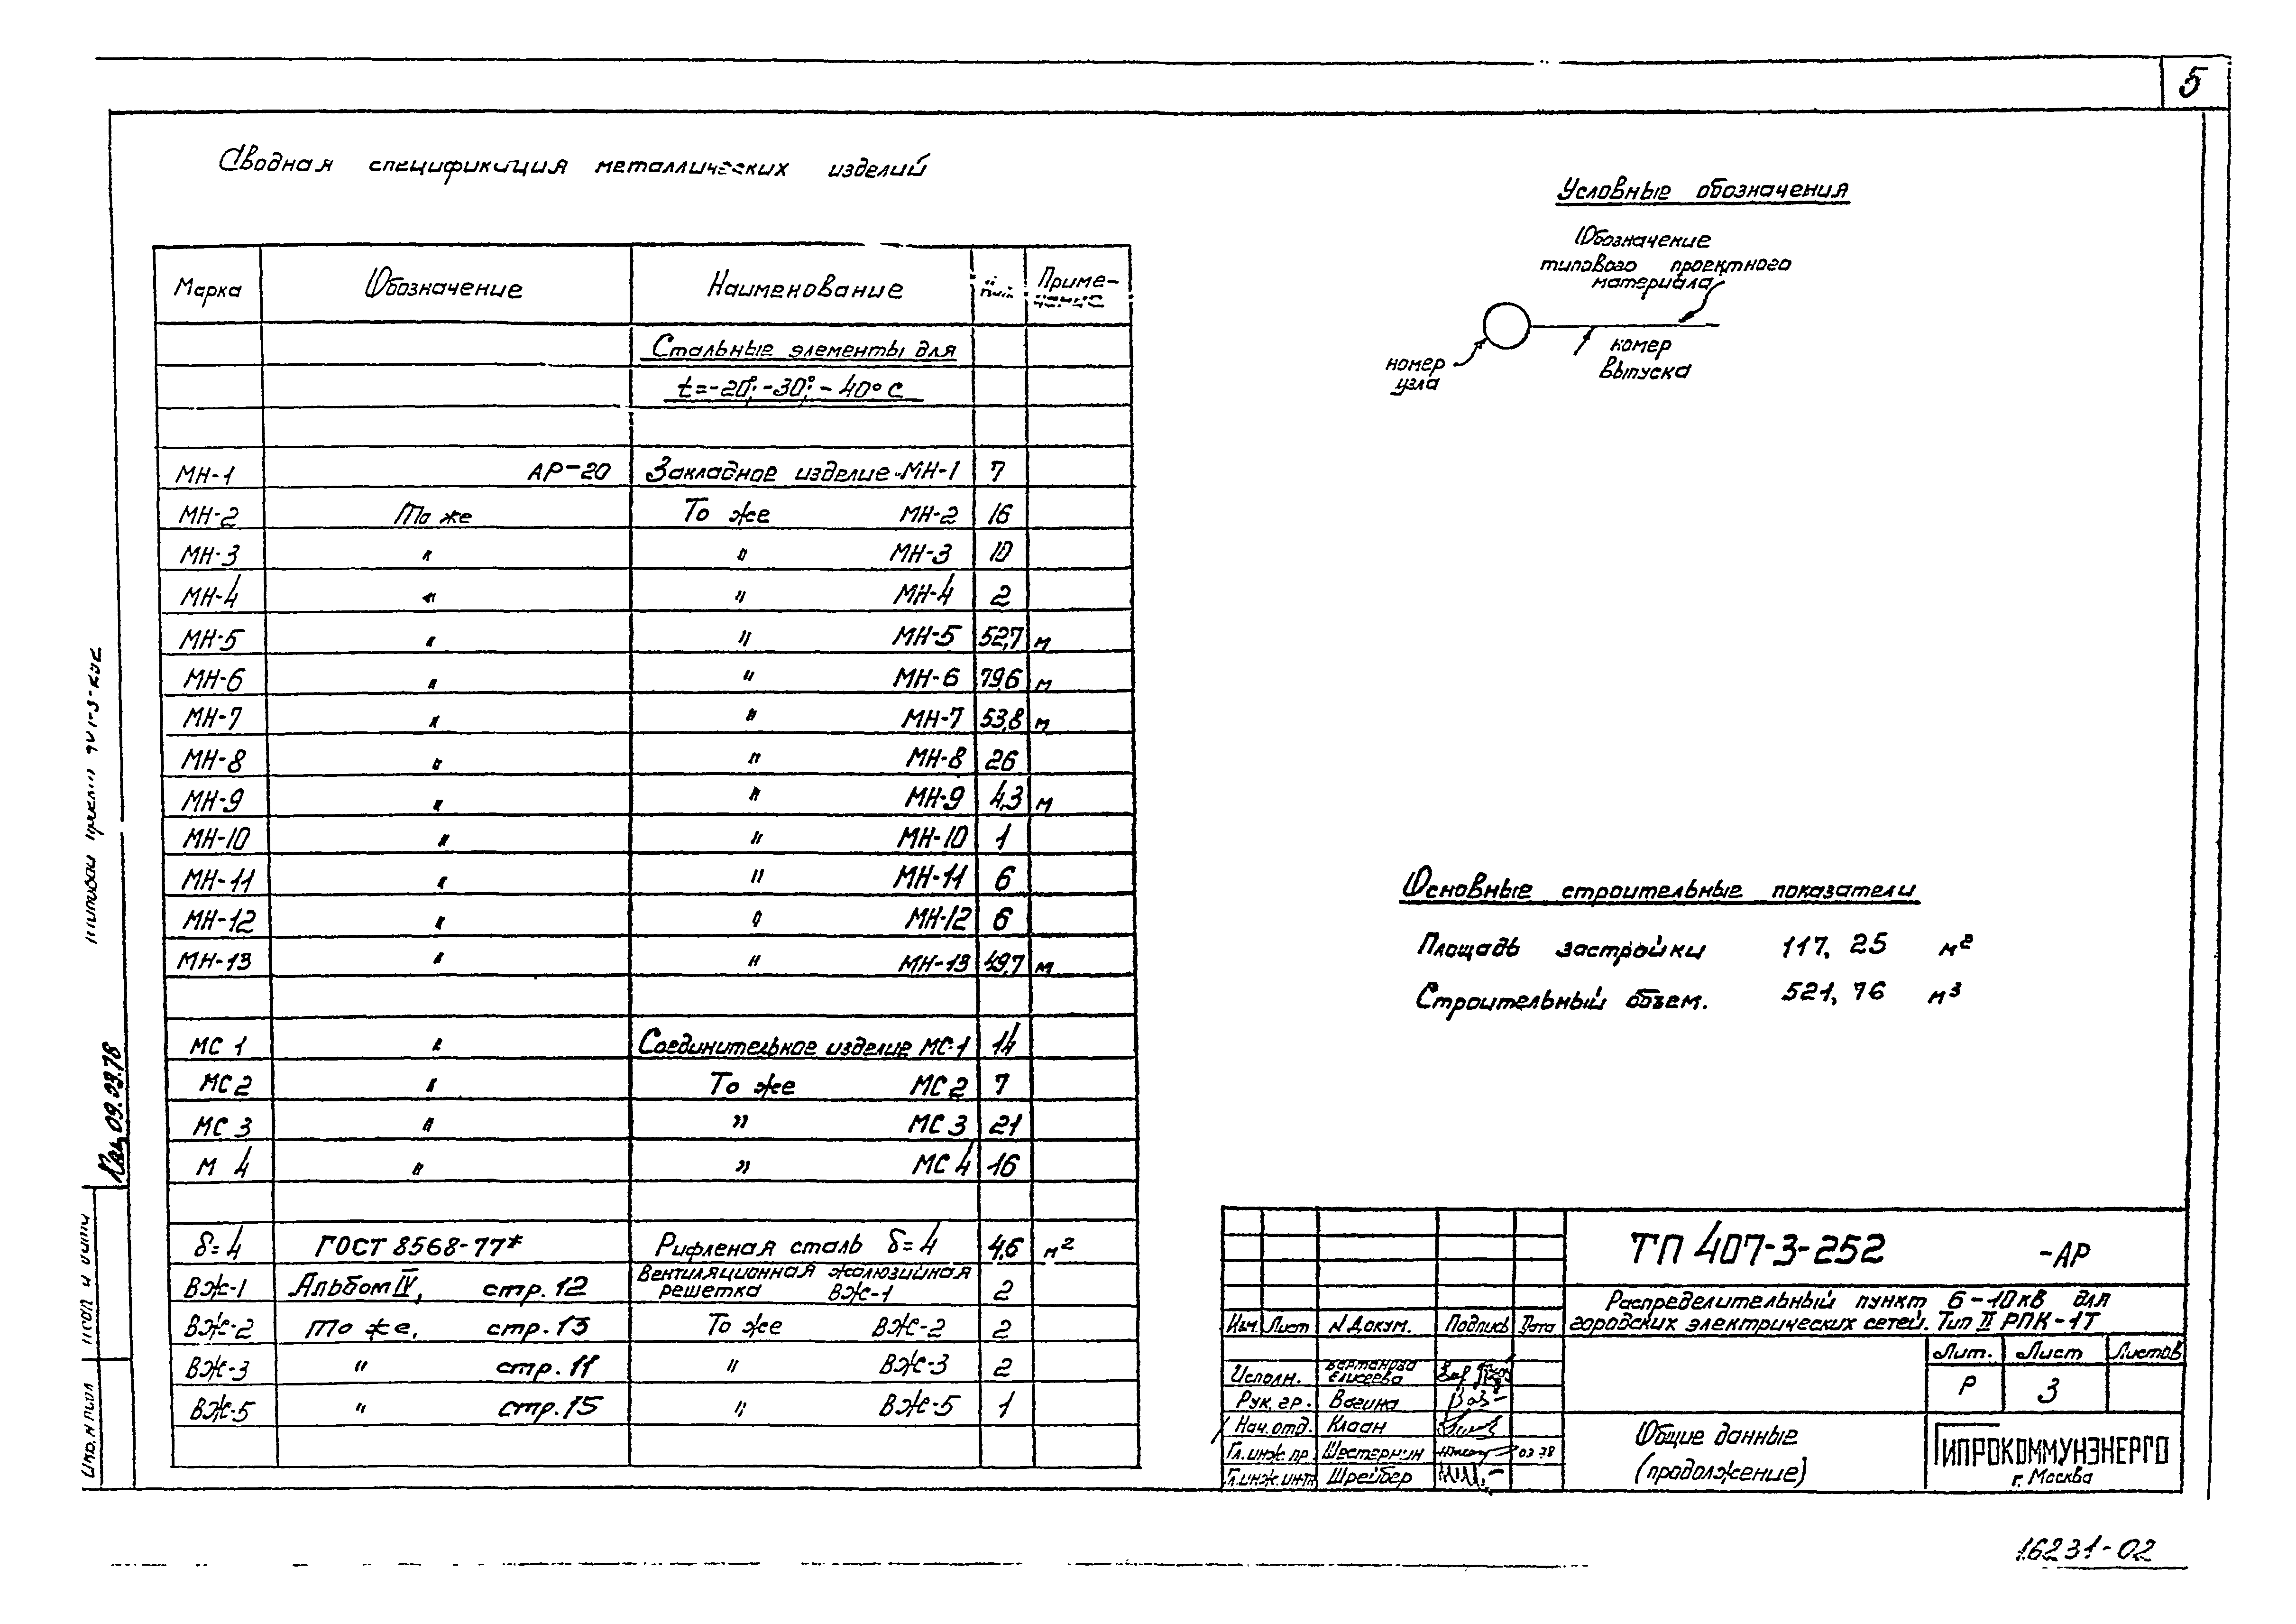 5
Сводная спецификация металлических изделий
Марка Обозначение Наименование Кол. Приме-
чание
Стальные элементы для
t=-20°; -30°; -40°С
МН-1 АР-20 Закладное изделие МН-1 7
МН-2 То же То же МН-2 16
МН-3 " " МН-3 10
МН-4 " " МН-4 2
МН-5 " " МН-5 52,7 м
МН-6 " " МН-6 79,6 м
МН-7 " " МН-7 53,8 м
МН-8 " " МН-8 26
МН-9 " " МН-9 4,3 м
МН-10 " " МН-10 1
МН-11 " " МН-11 6
МН-12 " " МН-12 6
МН-13 " " МН-13 49,7 м
МС 1 " Соединительное изделие МС-1 14
МС 2 " То же МС 2 7
МС 3 " " МС 3 21
М 4 " " МС 4 16
δ=4 ГОСТ 8568-77* Рифленая сталь δ=4 4,6 м²
ВЖ-1 Альбом IV, стр. 12 Вентиляционная жалюзийная
решетка ВЖ-1 2
ВЖ-2 То же, стр. 13 То же ВЖ-2 2
ВЖ-3 " стр. 11 " ВЖ-3 2
ВЖ-5 " стр. 15 " ВЖ-5 1
Условные обозначения
Обозначение
типового проектного
материала
номер
узла
номер
выпуска
Основные строительные показатели
Площадь застройки 117,25 м²
Строительный объем. 521,76 м³
ТП 407-3-252 -АР
Распределительный пункт 6-10кв для
городских электрических сетей. Тип II РПК-1Т
Изм. Лист N Докум. Подпись Дата
Исполн. Елисеева
Рук. гр. Вагина
Нач. отд. Клаан
Гл. инж. пр. Шестернин 03.78
Гл. инж. инта Шрейбер
Лит. Лист Листов
Р 3
Общие данные
(продолжение)
ГИПРОКОММУНЭНЕРГО
г. Москва
09.03.78
Инв. N подл
16231-02